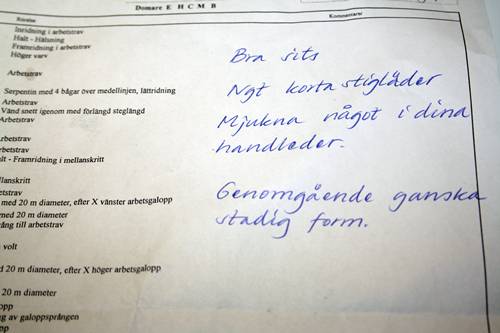 Domare E H C M B
Rörelse
Kommentarer
Inridning i arbetstrav
Halt - Hälsning
Framridning i arbetstrav
Höger varv
Bra sits
Arbetstrav
Ngt korta stigläder
Serpentin med 4 bågar över medellinjen, lättridning
Arbetstrav
Vänd snett igenom med förlängd steglängd
Arbetstrav
Mjukna något i dina
handleder.
Arbetstrav
Arbetstrav
Halt - Framridning i mellanskritt
Mellanskritt
Arbetstrav
med 20 m diameter, efter X vänster arbetsgalopp
med 20 m diameter
gång till arbetstrav
Genomgående ganska
stadig form.
volt
d 20 m diameter, efter X höger arbetsgalopp
20 m diameter
opp
ng av galoppsprången
opp